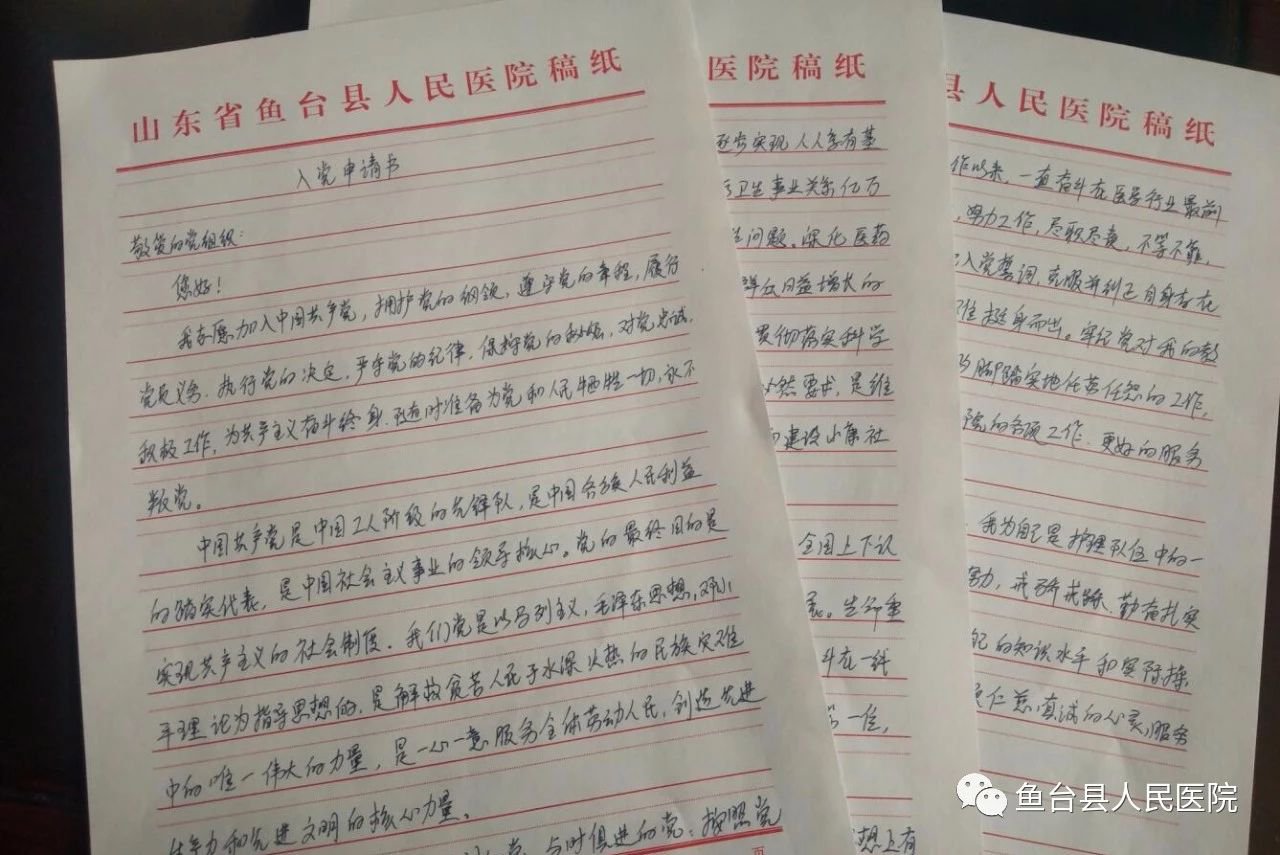 山东省鱼台县人民医院稿纸
入党申请书
敬爱的党组织:
您好!
我志愿加入中国共产党,拥护党的纲领,遵守党的章程,履行
党员义务,执行党的决定,严守党的纪律,保守党的秘密,对党忠诚,
积极工作,为共产主义奋斗终身,随时准备为党和人民牺牲一切,永不
叛党。
中国共产党是中国工人阶级的先锋队,是中国各族人民利益
的踏实代表,是中国社会主义事业的领导核心。党的最终目的是
实现共产主义的社会制度。我们党是以马列主义,毛泽东思想,邓小
平理论为指导思想的,是解放贫苦人民于水深火热的民族灾难
中的唯一伟大的力量,是一心一意服务全体劳动人民,创造先进
生产力和先进文明的核心力量。
与时俱进的党:按照党
页
医院稿纸
逐步实现人人享有基
卫生事业关系亿万
问题。深化医药
群众日益增长的
贯彻落实科学
必然要求,是维
建设小康社
全国上下认
生命重
斗在一线
第一位,
思想上有
县人民医院稿纸
作以来,一直奋斗在医务行业最前
,努力工作,尽职尽责,不等不靠,
入党誓词,克服并纠正自身存在
挺身而出。牢记党对我的教
脚踏实地任劳任怨的工作,
院的各项工作,更好的服务
我为自己是护理队伍中的一
努力,戒骄戒躁、勤奋扎实
的知识水平和实际操
仁慈,真诚的心灵,服务
鱼台县人民医院